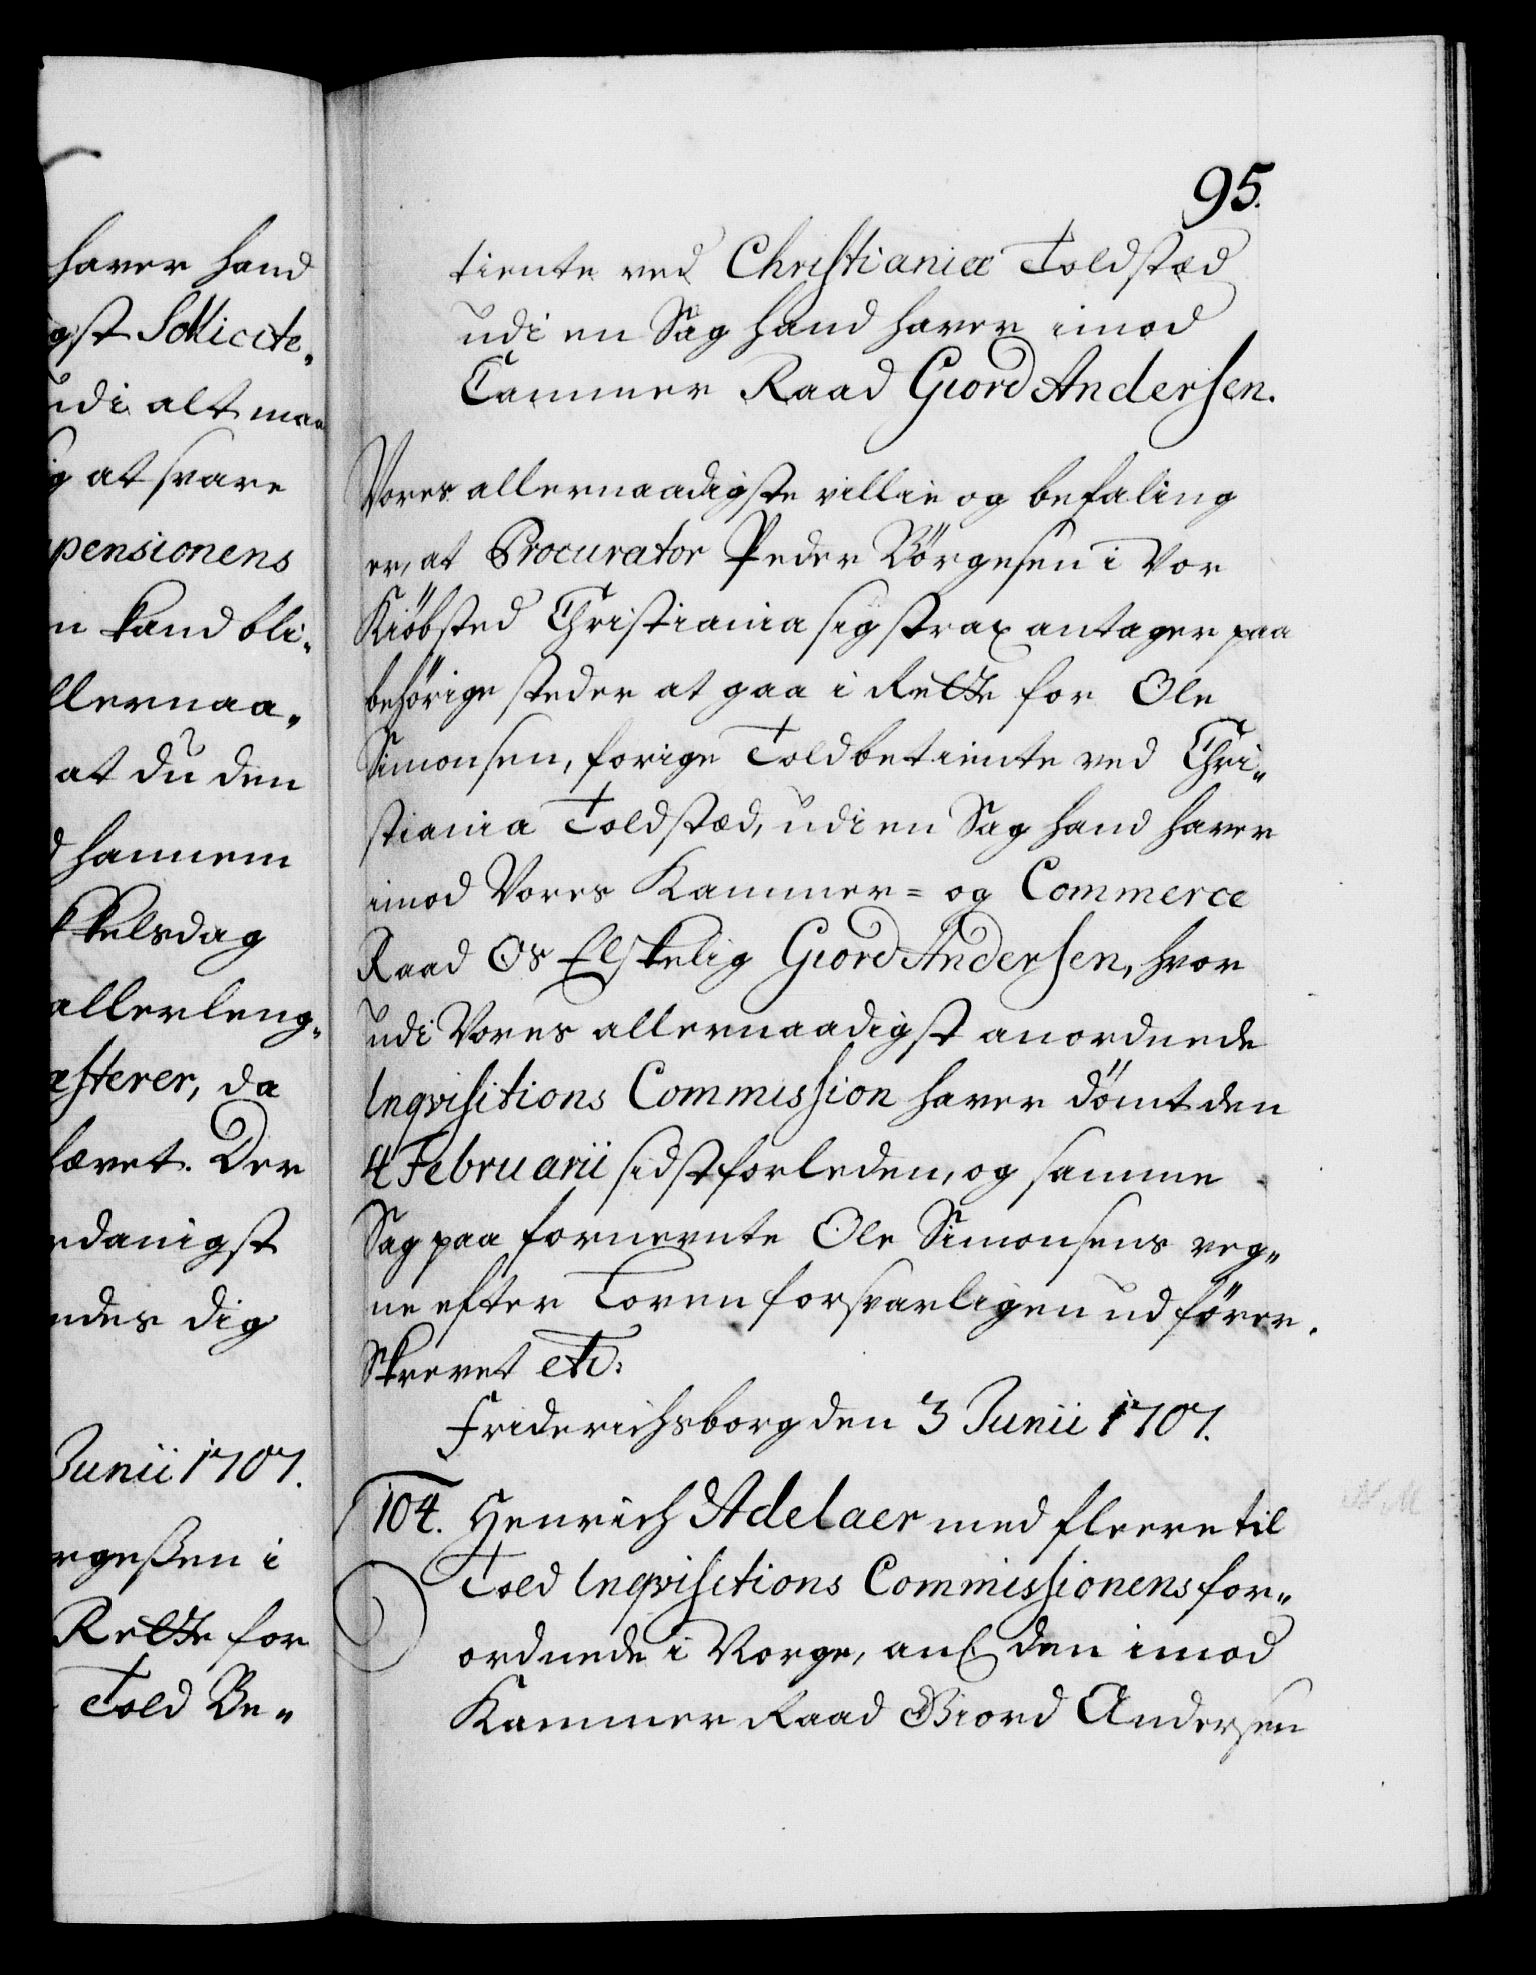 haver hand
gst Sollicite-
udi alt maa
ig at svare
pensionens
n kand bli-
llernaa-
at du den
d hannem
kkelsdag
allerleng-
æfterer, da
lævet. Der
rdanigst
ndes dig
Junii 1707.
rgeßen i
Rette for
Told Be-
95.
tiente ved Christianiæ Toldstæd
udi en Sag hand haver imod
Cammer Raad Giord Andersen.
Vores allernaadigste villie og befaling
er, at Procurator Peder Börgesen i Vor
Kiöbsted Christiania sig strax antager paa
behörige steder at gaa i Rette for Ole
Simonsen, forige Toldbetiente ved Chri-
stiania Toldstæd, udi en Sag hand haver
imod Vores Kammer= og Commerce
Raad Os Elskelig Giord Andersen, hvor
udi Vores allernaadigst anordnede
Inqvisitions Commission haver dömt den
4 Februarii sidstforleden, og samme
Sag paa fornevnte Ole Simonsens veg-
ne efter Loven forsvarligen udförer.
Skrevet etc:
Friderichsborg den 3 Junii 1707.
104. Henrich Adelaer med fleere til
Told Inqvisitions Commissionens for-
ordnede i Norge, anl. den imod
Kammer Raad Giord Andersen